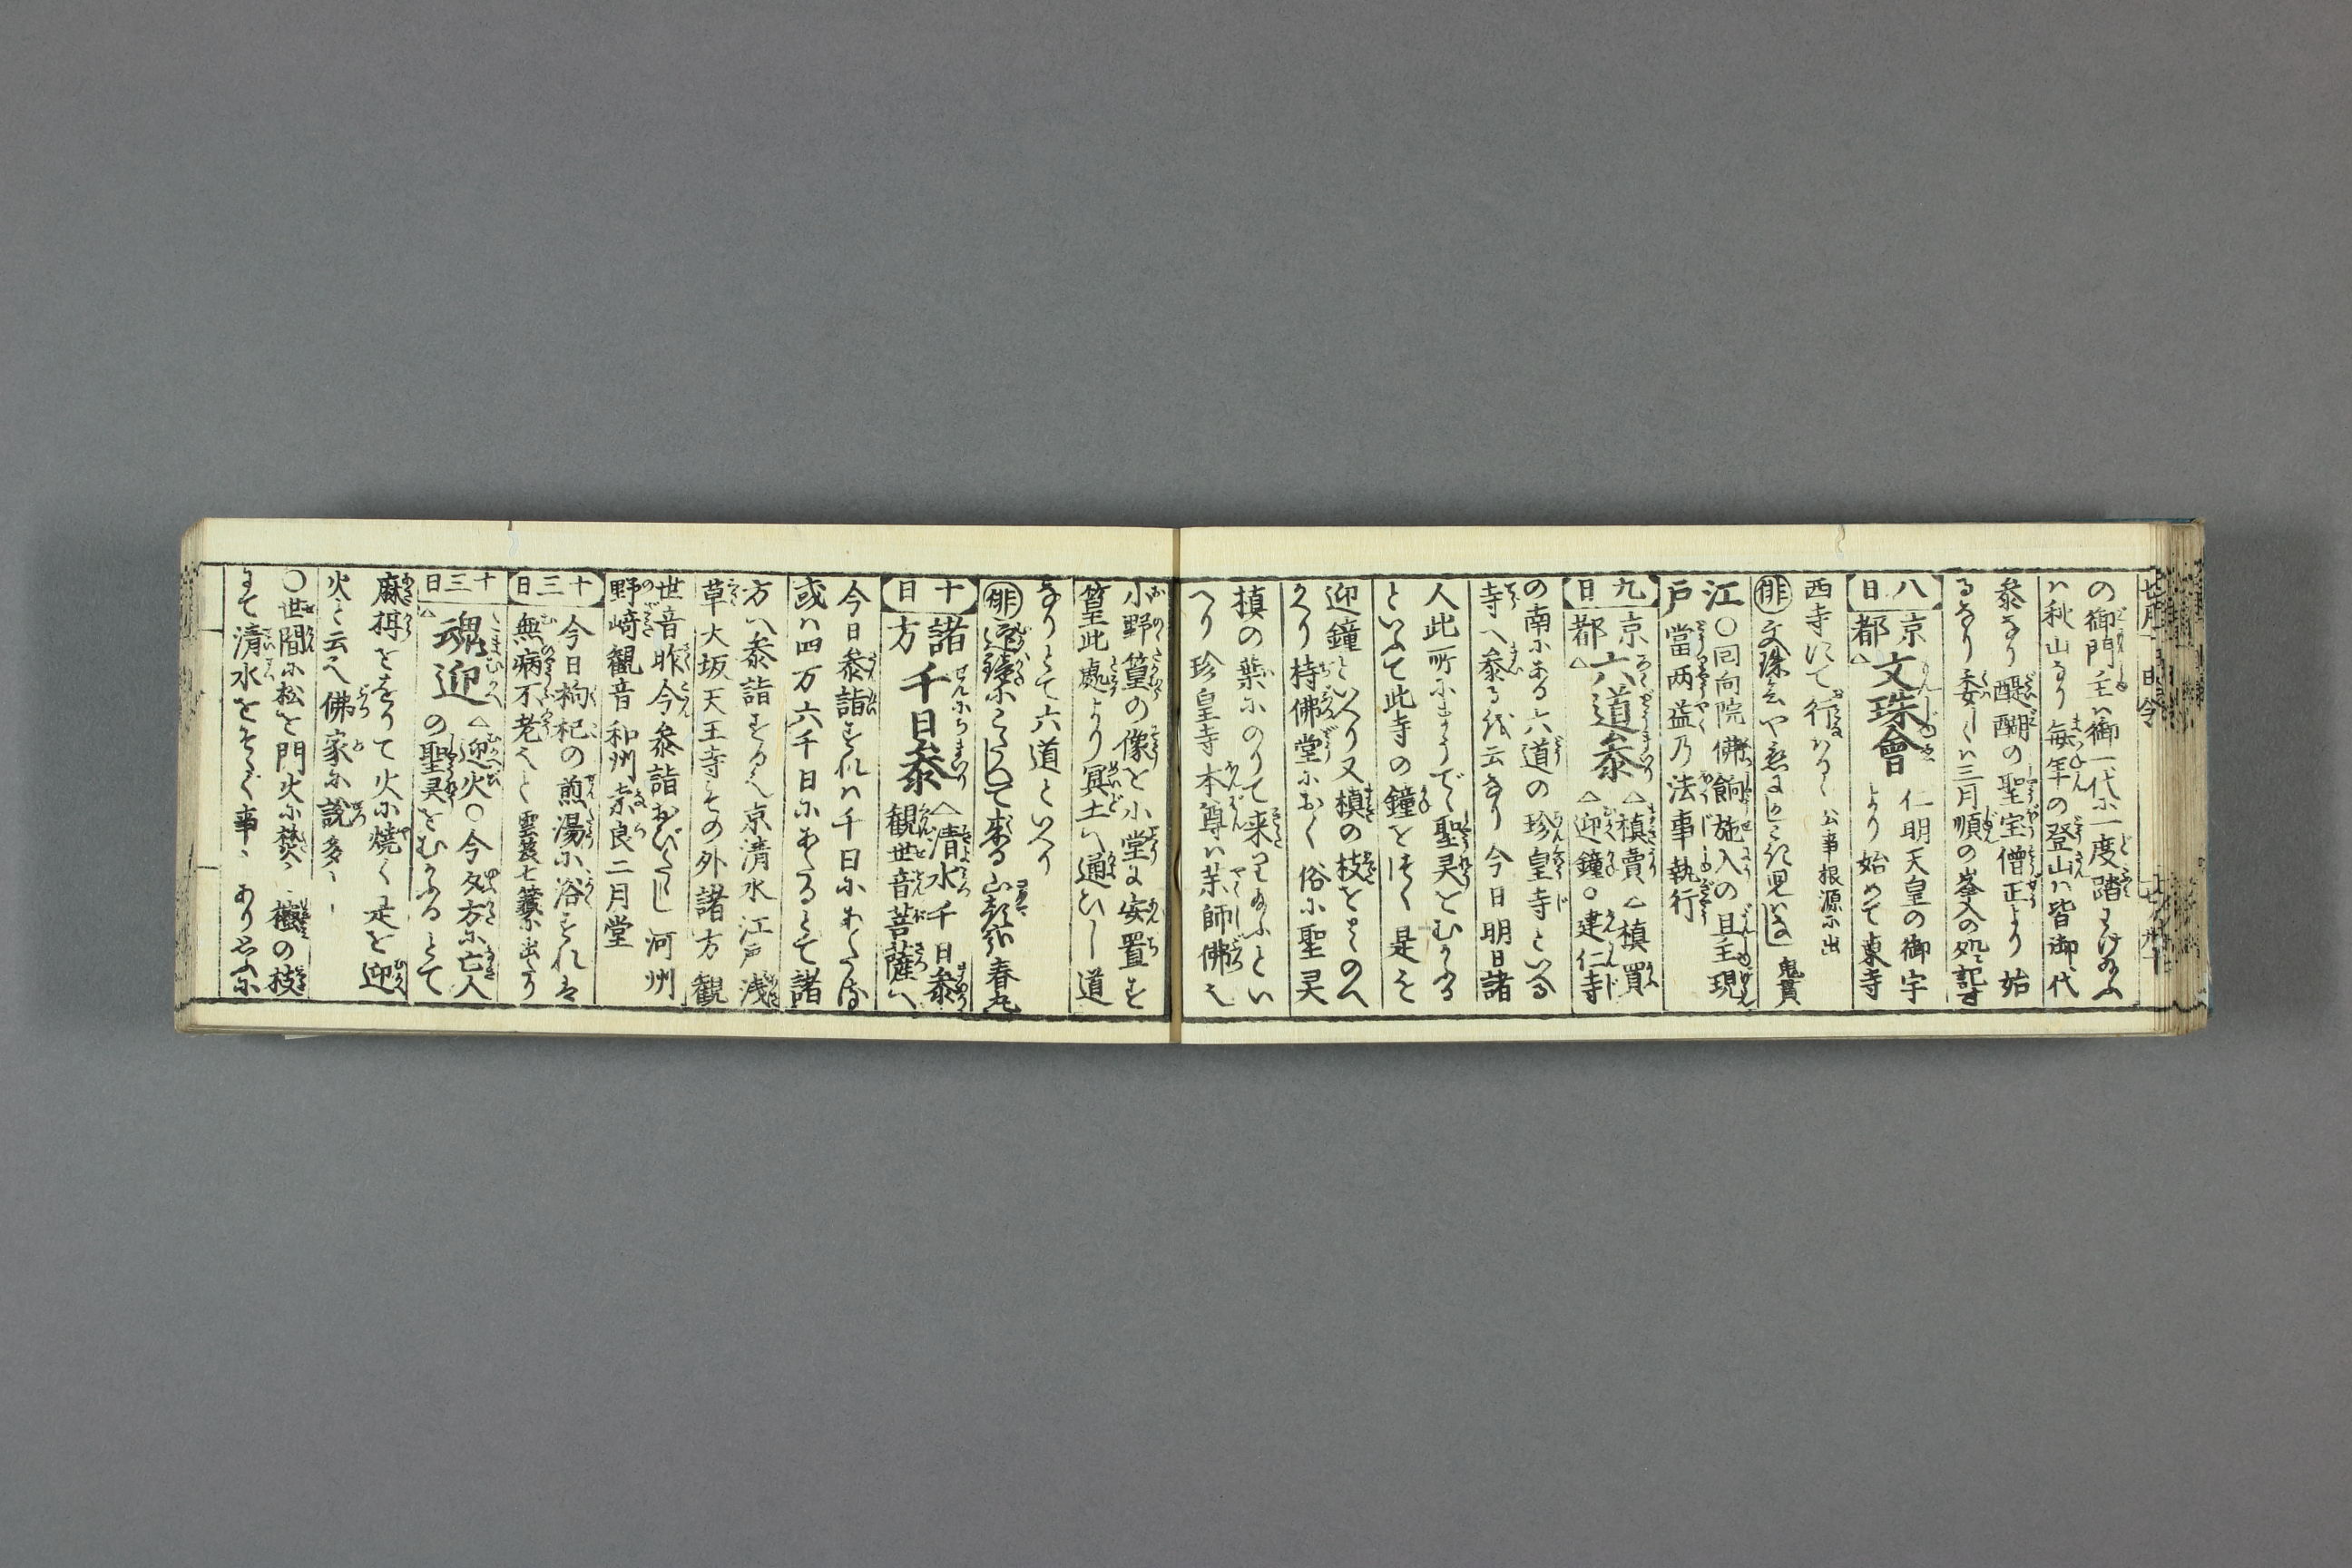 の御門主ハ御一代に一度踏わけ給ふ
ハ秋山なり毎年の登山ハ皆御代
参なり醍醐の聖宝僧正より始
るなり委しくハ三月順の峯入の処ニ記す
八日 京都 文珠會 仁明天皇の御宇
より始めて東寺
西寺にて行はるゝ 公事根源に出
俳 文珠会や 鬼貫
江戸 〇回向院佛餉施入の旦主現
當両益乃法事執行
九日 京都 六道参 △槙賣△槙買
△迎鐘〇建仁寺
の南にある六道の珍皇寺といる
寺へ参るを云なり今日明日諸
人此所にまうで聖灵をむかふる
といふて此寺の鐘をつく是を
迎鐘といへり又槙の枝をもとめ
かへり持佛堂におく俗に聖灵
槙の葉にのりて来り給ふとい
へり珍皇寺本尊ハ薬師佛也
小野篁の像を小堂に安置す
篁此處より冥土へ通ひし道
なりとて六道といへり
俳 迎鐘にこたへて来る 春丸
十日 諸方 千日参 △清水千日参
観世音菩薩へ
今日参詣すれハ千日にあたる
或ハ四万六千日にあたるとて諸
方へ参詣する也京清水江戸浅
草大坂天王寺その外諸方観
世音昨今参詣おびたゝし河州
野崎観音和州奈良二月堂
十三日 今日枸杞の煎湯に浴すれは
無病不老也と雲笈七籤に出たり
十三日 魂迎 △迎火〇今夕方に亡人
の聖灵をむかふるとて
麻稭を折りて火に焼く是を迎
火と云又佛家に説多し
〇世間に松を門火に焚 樒の枝
にて清水をそゝぐ事 あり